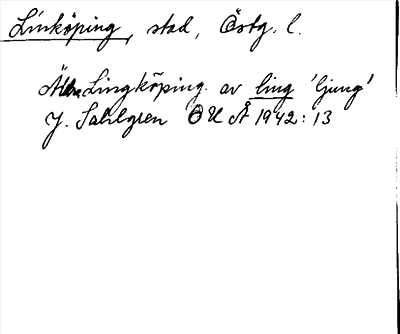 Linköping, stad, Östg. l.
Äldre Lingköping. av ling 'ljung'
J. Sahlgren OUÅ 1942: 13